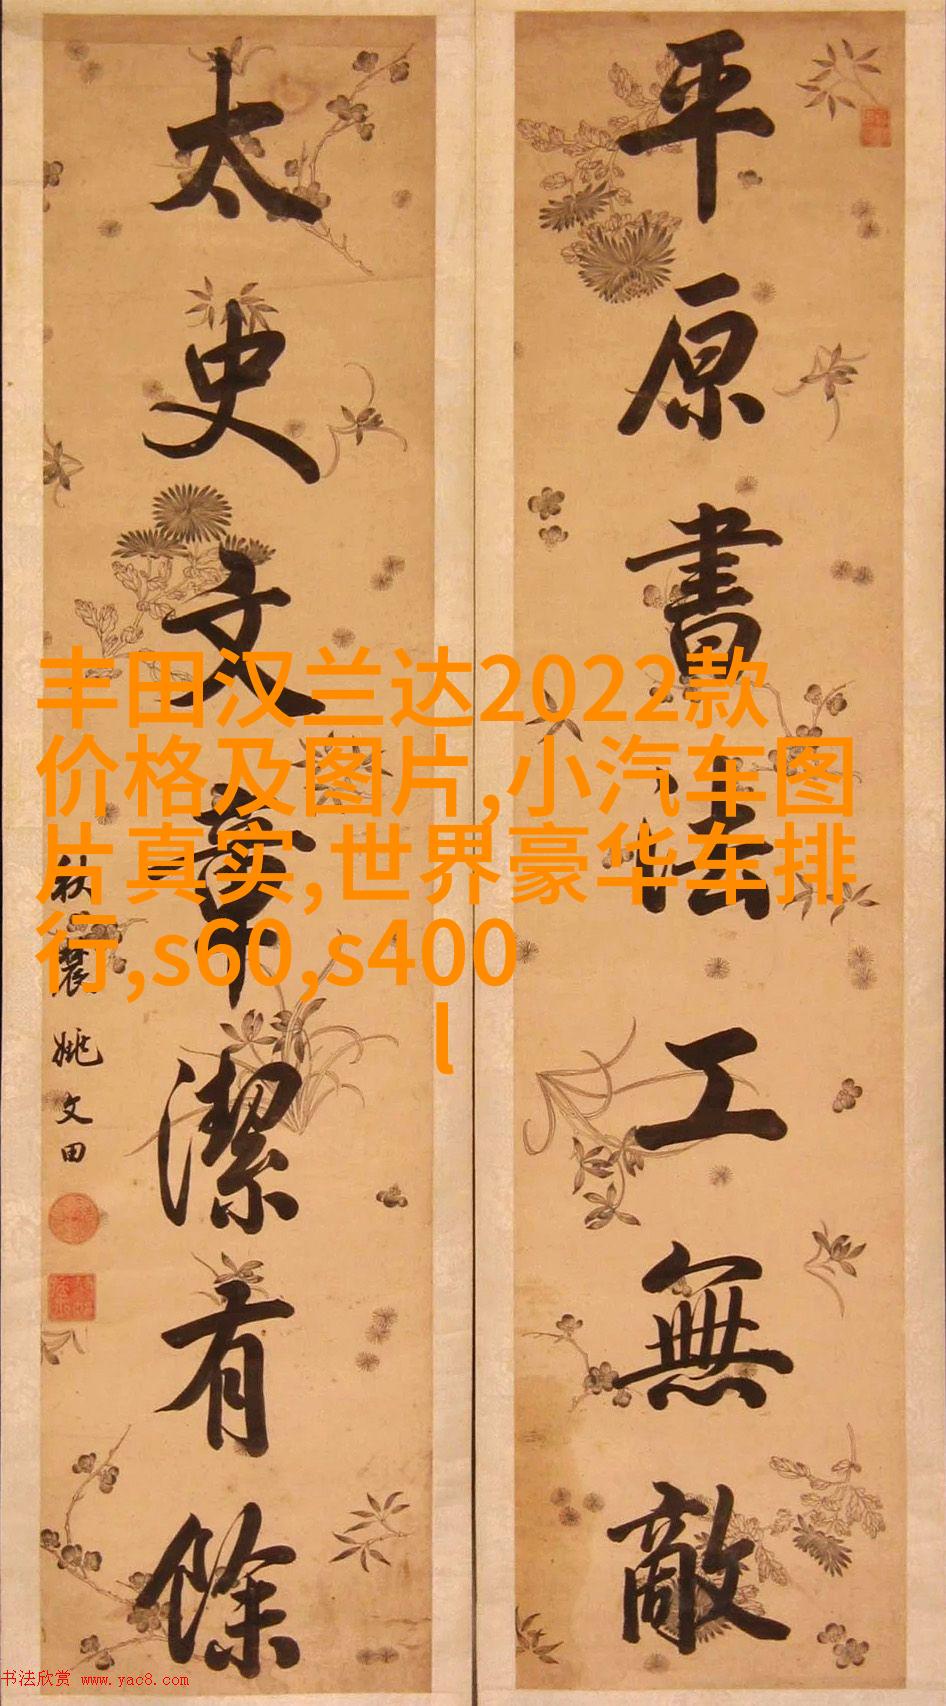 平原書法工無敵
太史文章潔有餘
秋農姚文田
丰田汉兰达2022款
价格及图片,小汽车图
片真实,世界豪华车排
行,s60,s400
l
书法欣赏 www.yac8.com